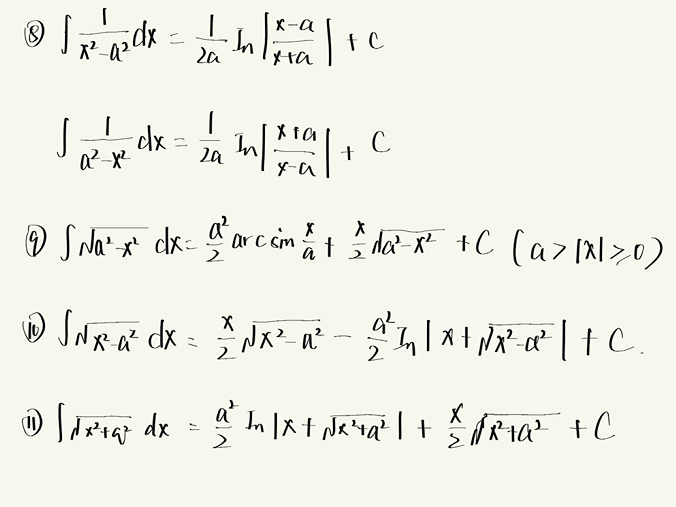 ⑧ ∫ 1/(x²-a²) dx = 1/(2a) ln |(x-a)/(x+a)| + C
∫ 1/(a²-x²) dx = 1/(2a) ln |(x+a)/(x-a)| + C
⑨ ∫ √(a²-x²) dx = a²/2 arcsin x/a + x/2 √(a²-x²) + C (a>|x|≥0)
⑩ ∫ √(x²-a²) dx = x/2 √(x²-a²) - a²/2 ln |x+√(x²-a²)| + C.
⑪ ∫ √(x²+a²) dx = a²/2 ln |x+√(x²+a²)| + x/2 √(x²+a²) + C